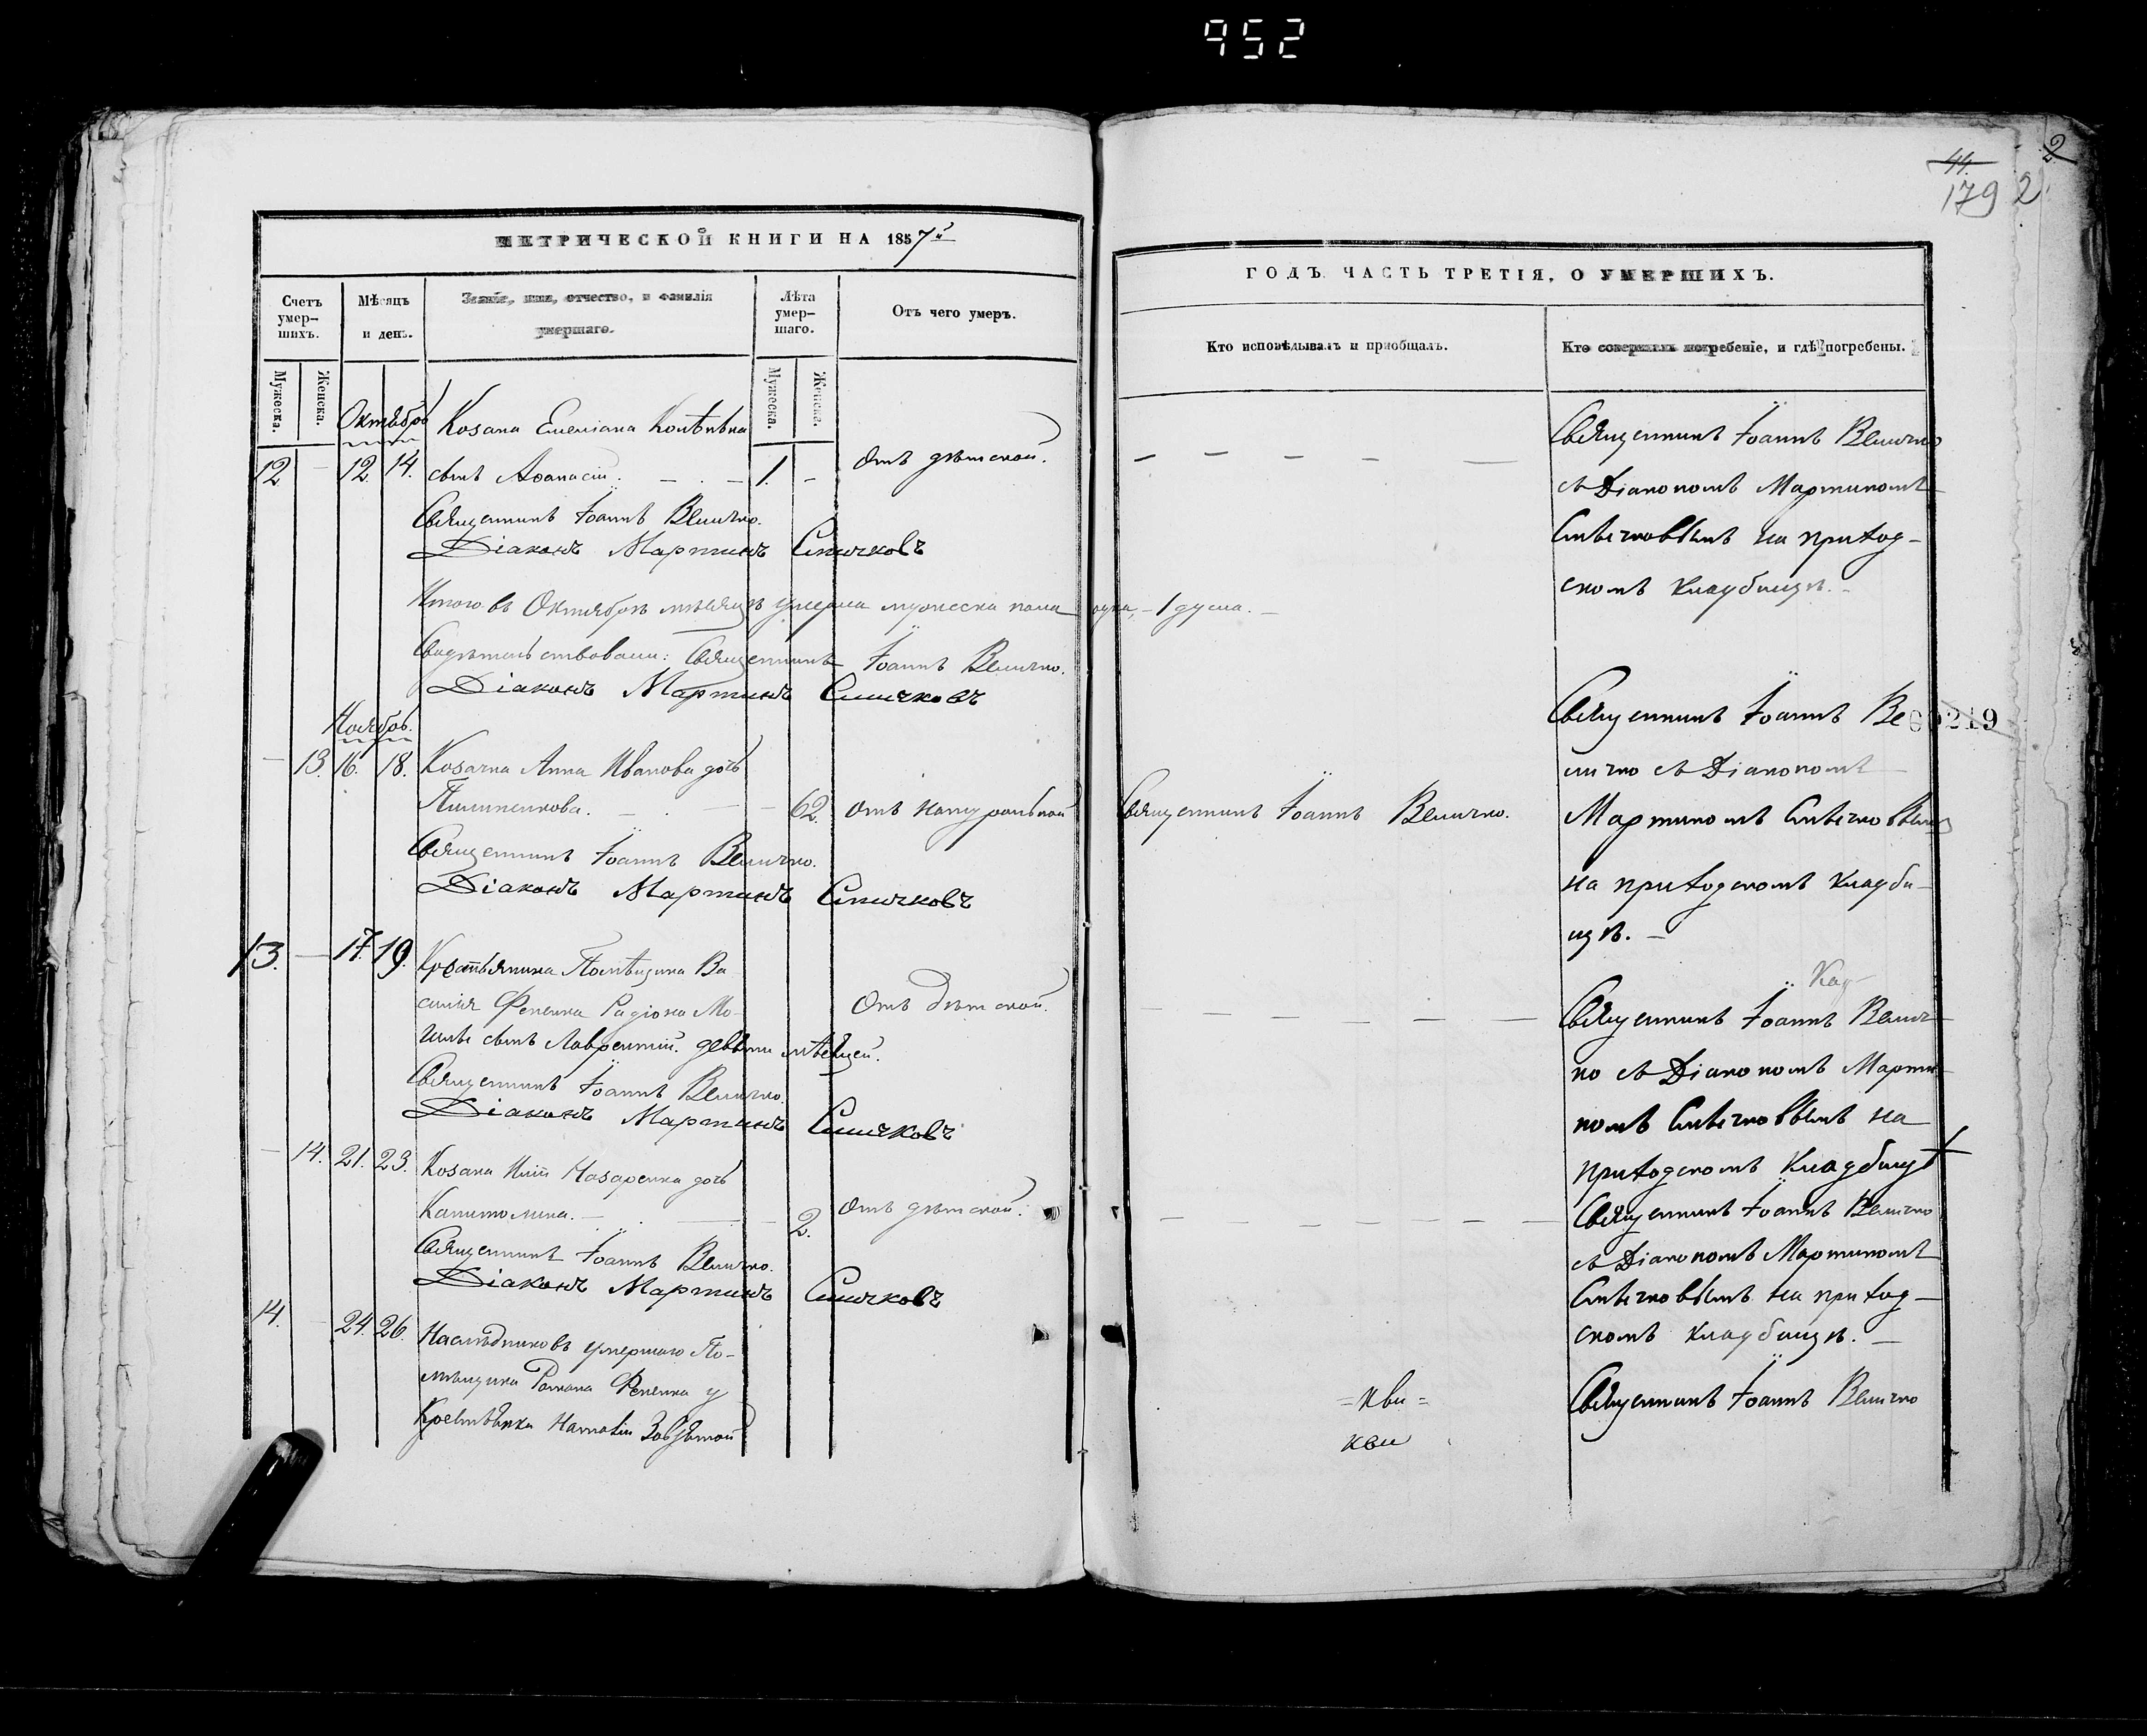 952
44.
179 2
2
МЕТРИЧЕСКОЙ КНИГИ НА 1857й
Счетъ умер- шихъ.
Мѣсяцъ и день.
Званіе, имя, отчество, и фамилія умершаго.
Лѣта умер- шаго.
Отъ чего умеръ.
Мужеска. Женска.
Мужеска. Женска.
Октябрь
Козака Емеліана
12 — 12 14. сынъ Аѳанасій. — . — 1. — Отъ дѣтской.
Священникъ Іоаннъ Величко.
Діаконъ Мартинъ
Итого въ Октябрѣ мѣсяцѣ умерла мужеска пола одна, — 1 душа. —
Свидѣтельствовали: Священникъ Іоаннъ Величко.
Діаконъ Мартинъ
Ноябрь.
— 13. 16. 18. Козачка Анна Иванова дочь
— 62. Отъ натуральной
Священникъ Іоаннъ Величко.
Діаконъ Мартинъ
13. — 17. 19. Крестьянина Помѣщика Ва-
силія Радіона Мо-
сынъ Лаврентій. девяти мѣсяцей. Отъ Дѣтской.
Священникъ Іоаннъ Величко.
Діаконъ Мартинъ
— 14. 21. 23. Козака Назаренка дочь
Капитолина. — . — 2. Отъ дѣтской.
Священникъ Іоаннъ Величко.
Діаконъ Мартинъ
14. — 24. 26. Наслѣдниковъ умершаго По-
мѣщика Романа у
Крестьянки Наталіи
ГОДЪ. ЧАСТЬ ТРЕТІЯ, О УМЕРШИХЪ.
Кто исповѣдывалъ и пріобщалъ.
Кто совершалъ погребеніе, и гдѣ погребены.
Священникъ Іоаннъ Величко
съ Діакономъ Мартиномъ
на приход-
скомъ кладбищѣ. —
Священникъ Іоаннъ Ве
личко съ Діакономъ
Священникъ Іоаннъ Величко. Мартиномъ
на приходскомъ кладби-
щѣ. —
Священникъ Іоаннъ Велич-
ко съ Діакономъ Марти-
номъ на
приходскомъ кладбищѣ
Священникъ Іоаннъ Величко
съ Діакономъ Мартиномъ
на приход-
скомъ кладбищѣ. —
Священникъ Іоаннъ Величко